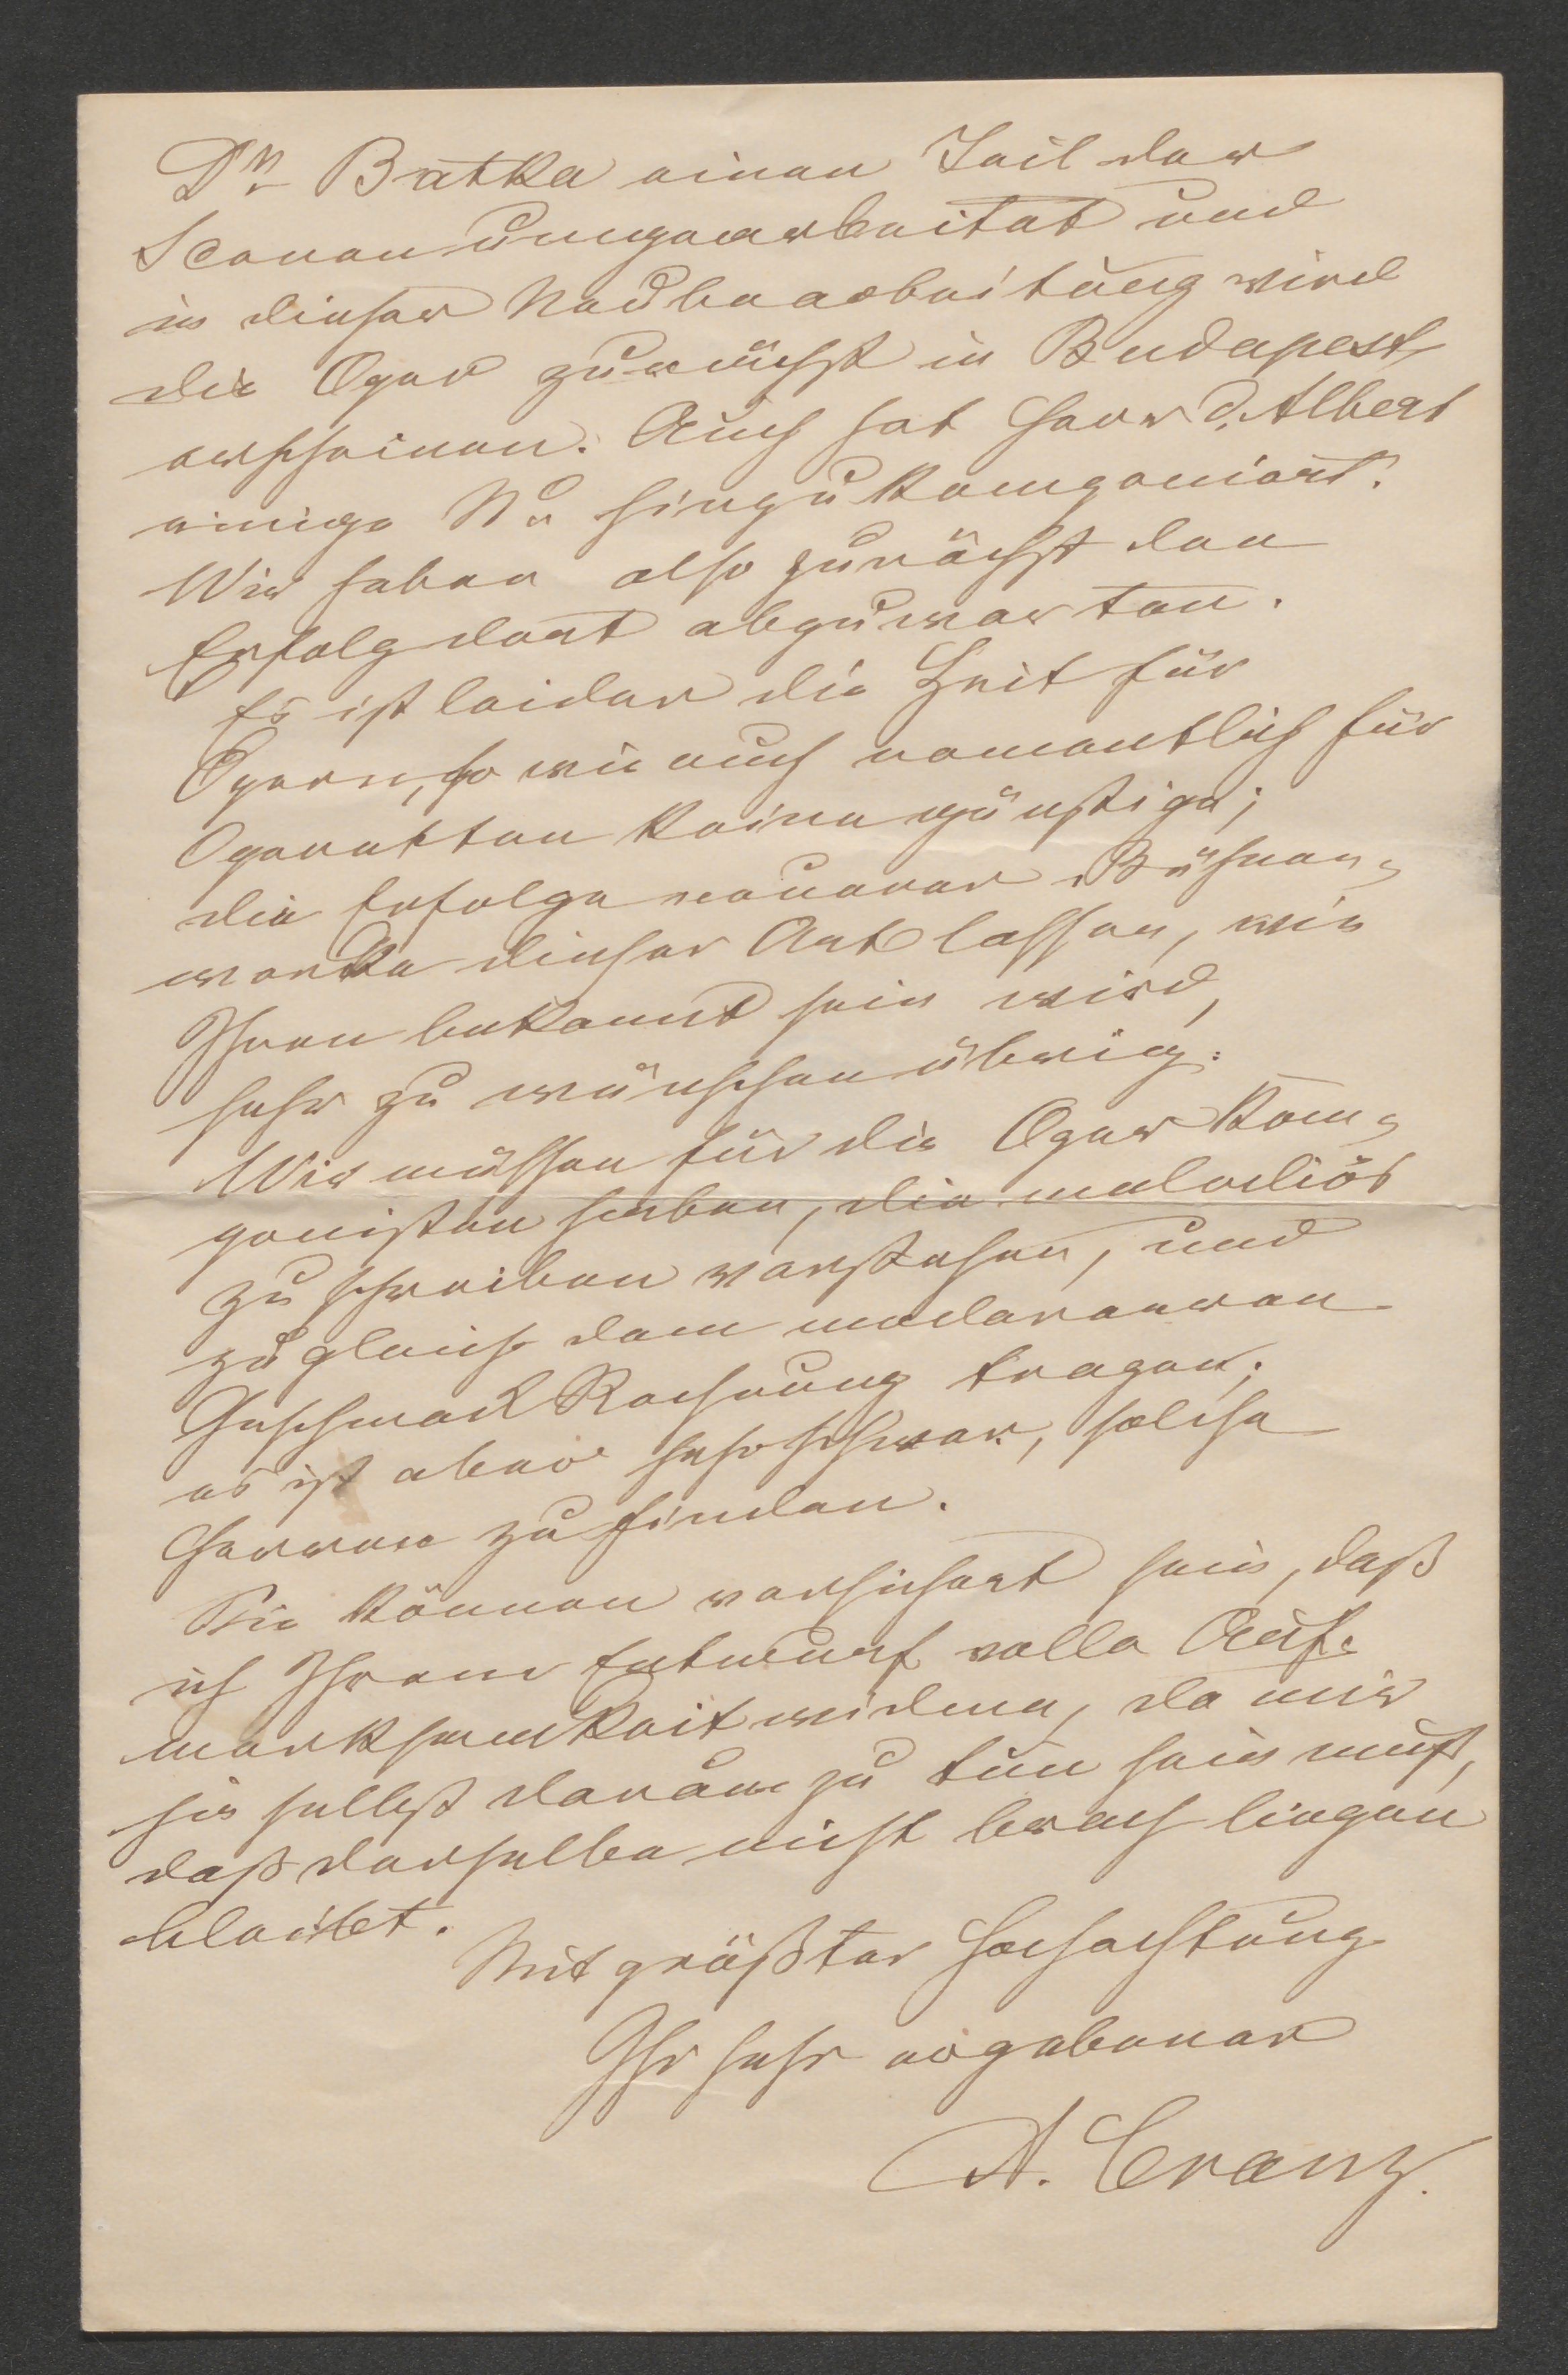 Dr Batka einen Teil der
Scenen umgearbeitet und
in dieser Neubearbeitung wird
die Oper zunächst in Budapest
erscheinen. Auch hat Herr d'Albert
einige Nr hinzukomponiert.
Wir haben also zunächst den
Erfolg dort abzuwarten.
Es ist leider die Zeit für
Opern, so wie auch namentlich für
Operetten keine günstige;
die Erfolge neuerer Bühnen-
werke dieser Art lassen, wie
Ihnen bekannt sein wird,
sehr zu wünschen übrig.
Wir müssen für die Oper Kom-
ponisten haben, die melodiös
zu schreiben verstehen, und
zugleich dem moderneren
Geschmack Rechnung tragen;
es ist aber sehr schwer, solche
Herren zu finden.
Sie können versichert sein, daß
ich Ihrem Entwurf volle Auf-
merksamkeit widme, da mir
ja selbst darum zu tun sein muß,
daß derselbe nicht brach liegen
bleibet.
Mit größter Hochachtung
Ihr sehr ergebener
A. Cranz.